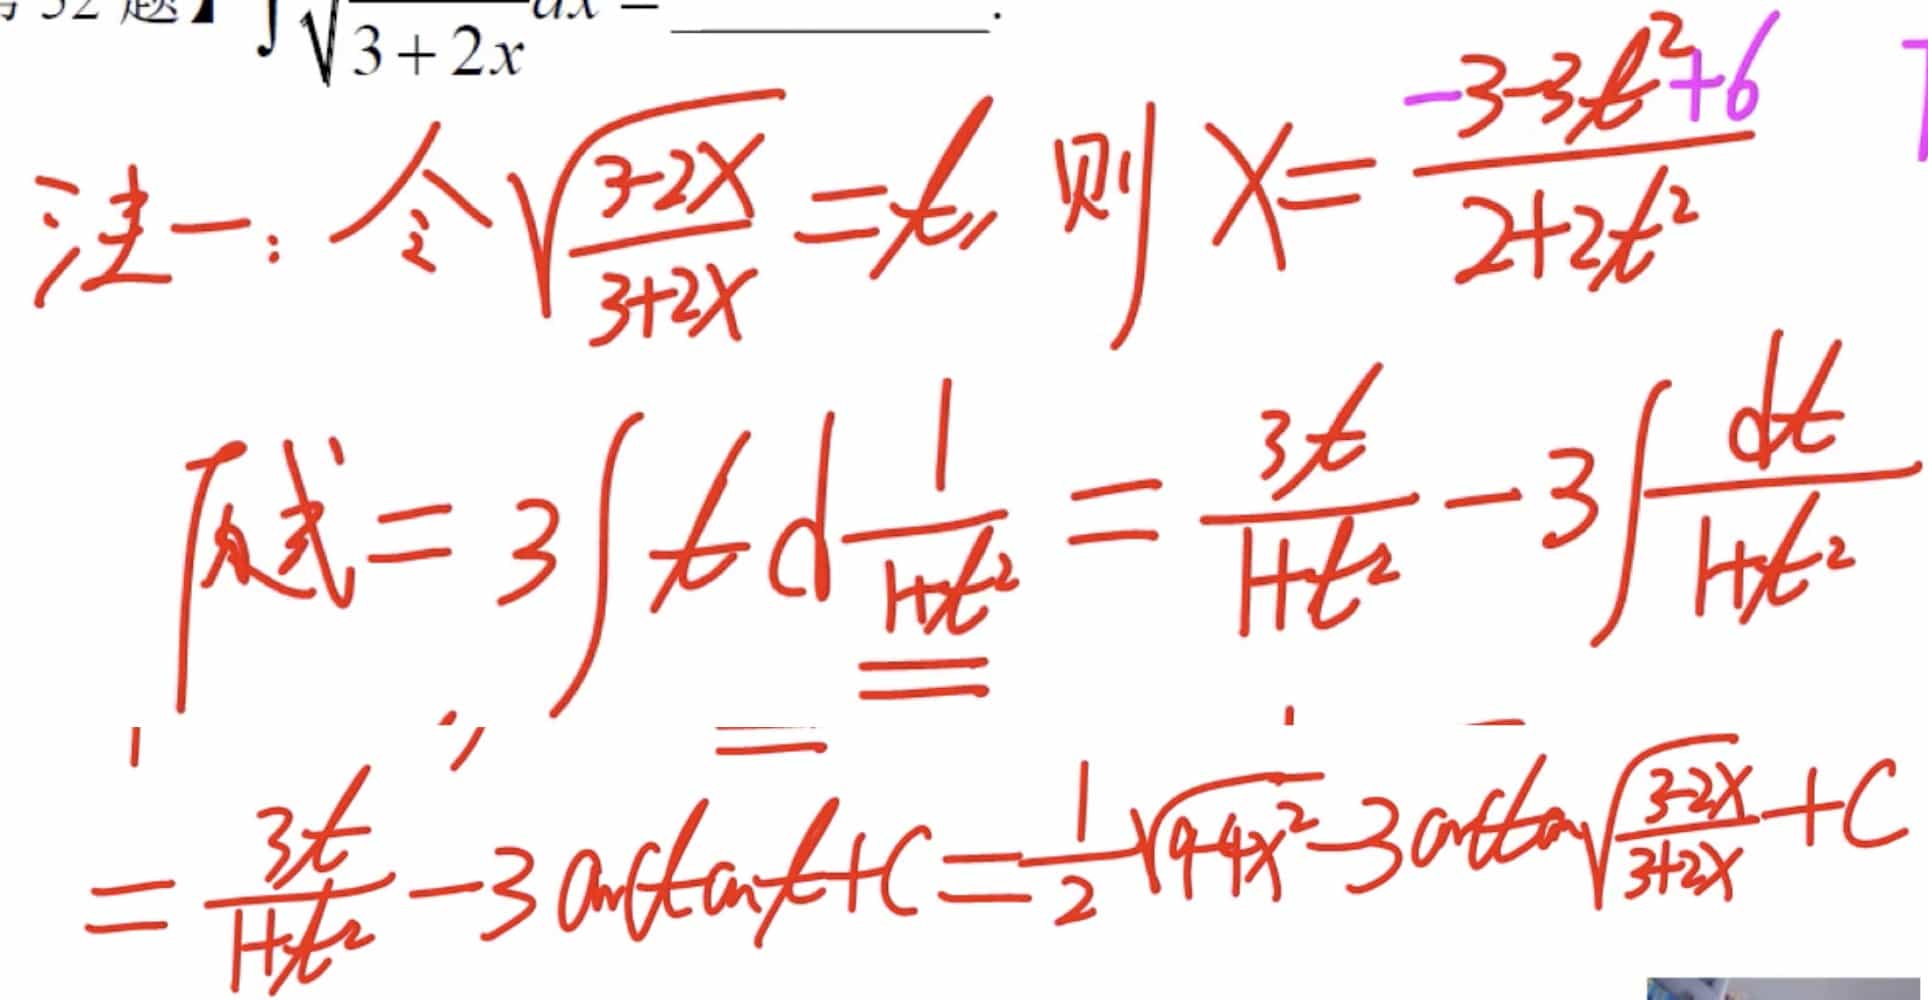 32 题】∫√ 3+2x dx = ________.
法一: 令 √((3-2x)/(3+2x)) = t, 则 x = (-3-3t²+6)/(2+2t²)
原式 = 3∫ t d 1/(1+t²) = 3t/(1+t²) - 3∫ dt/(1+t²)
= 3t/(1+t²) - 3arctan t + C = 1/2 √(9-4x²) - 3arctan √((3-2x)/(3+2x)) + C